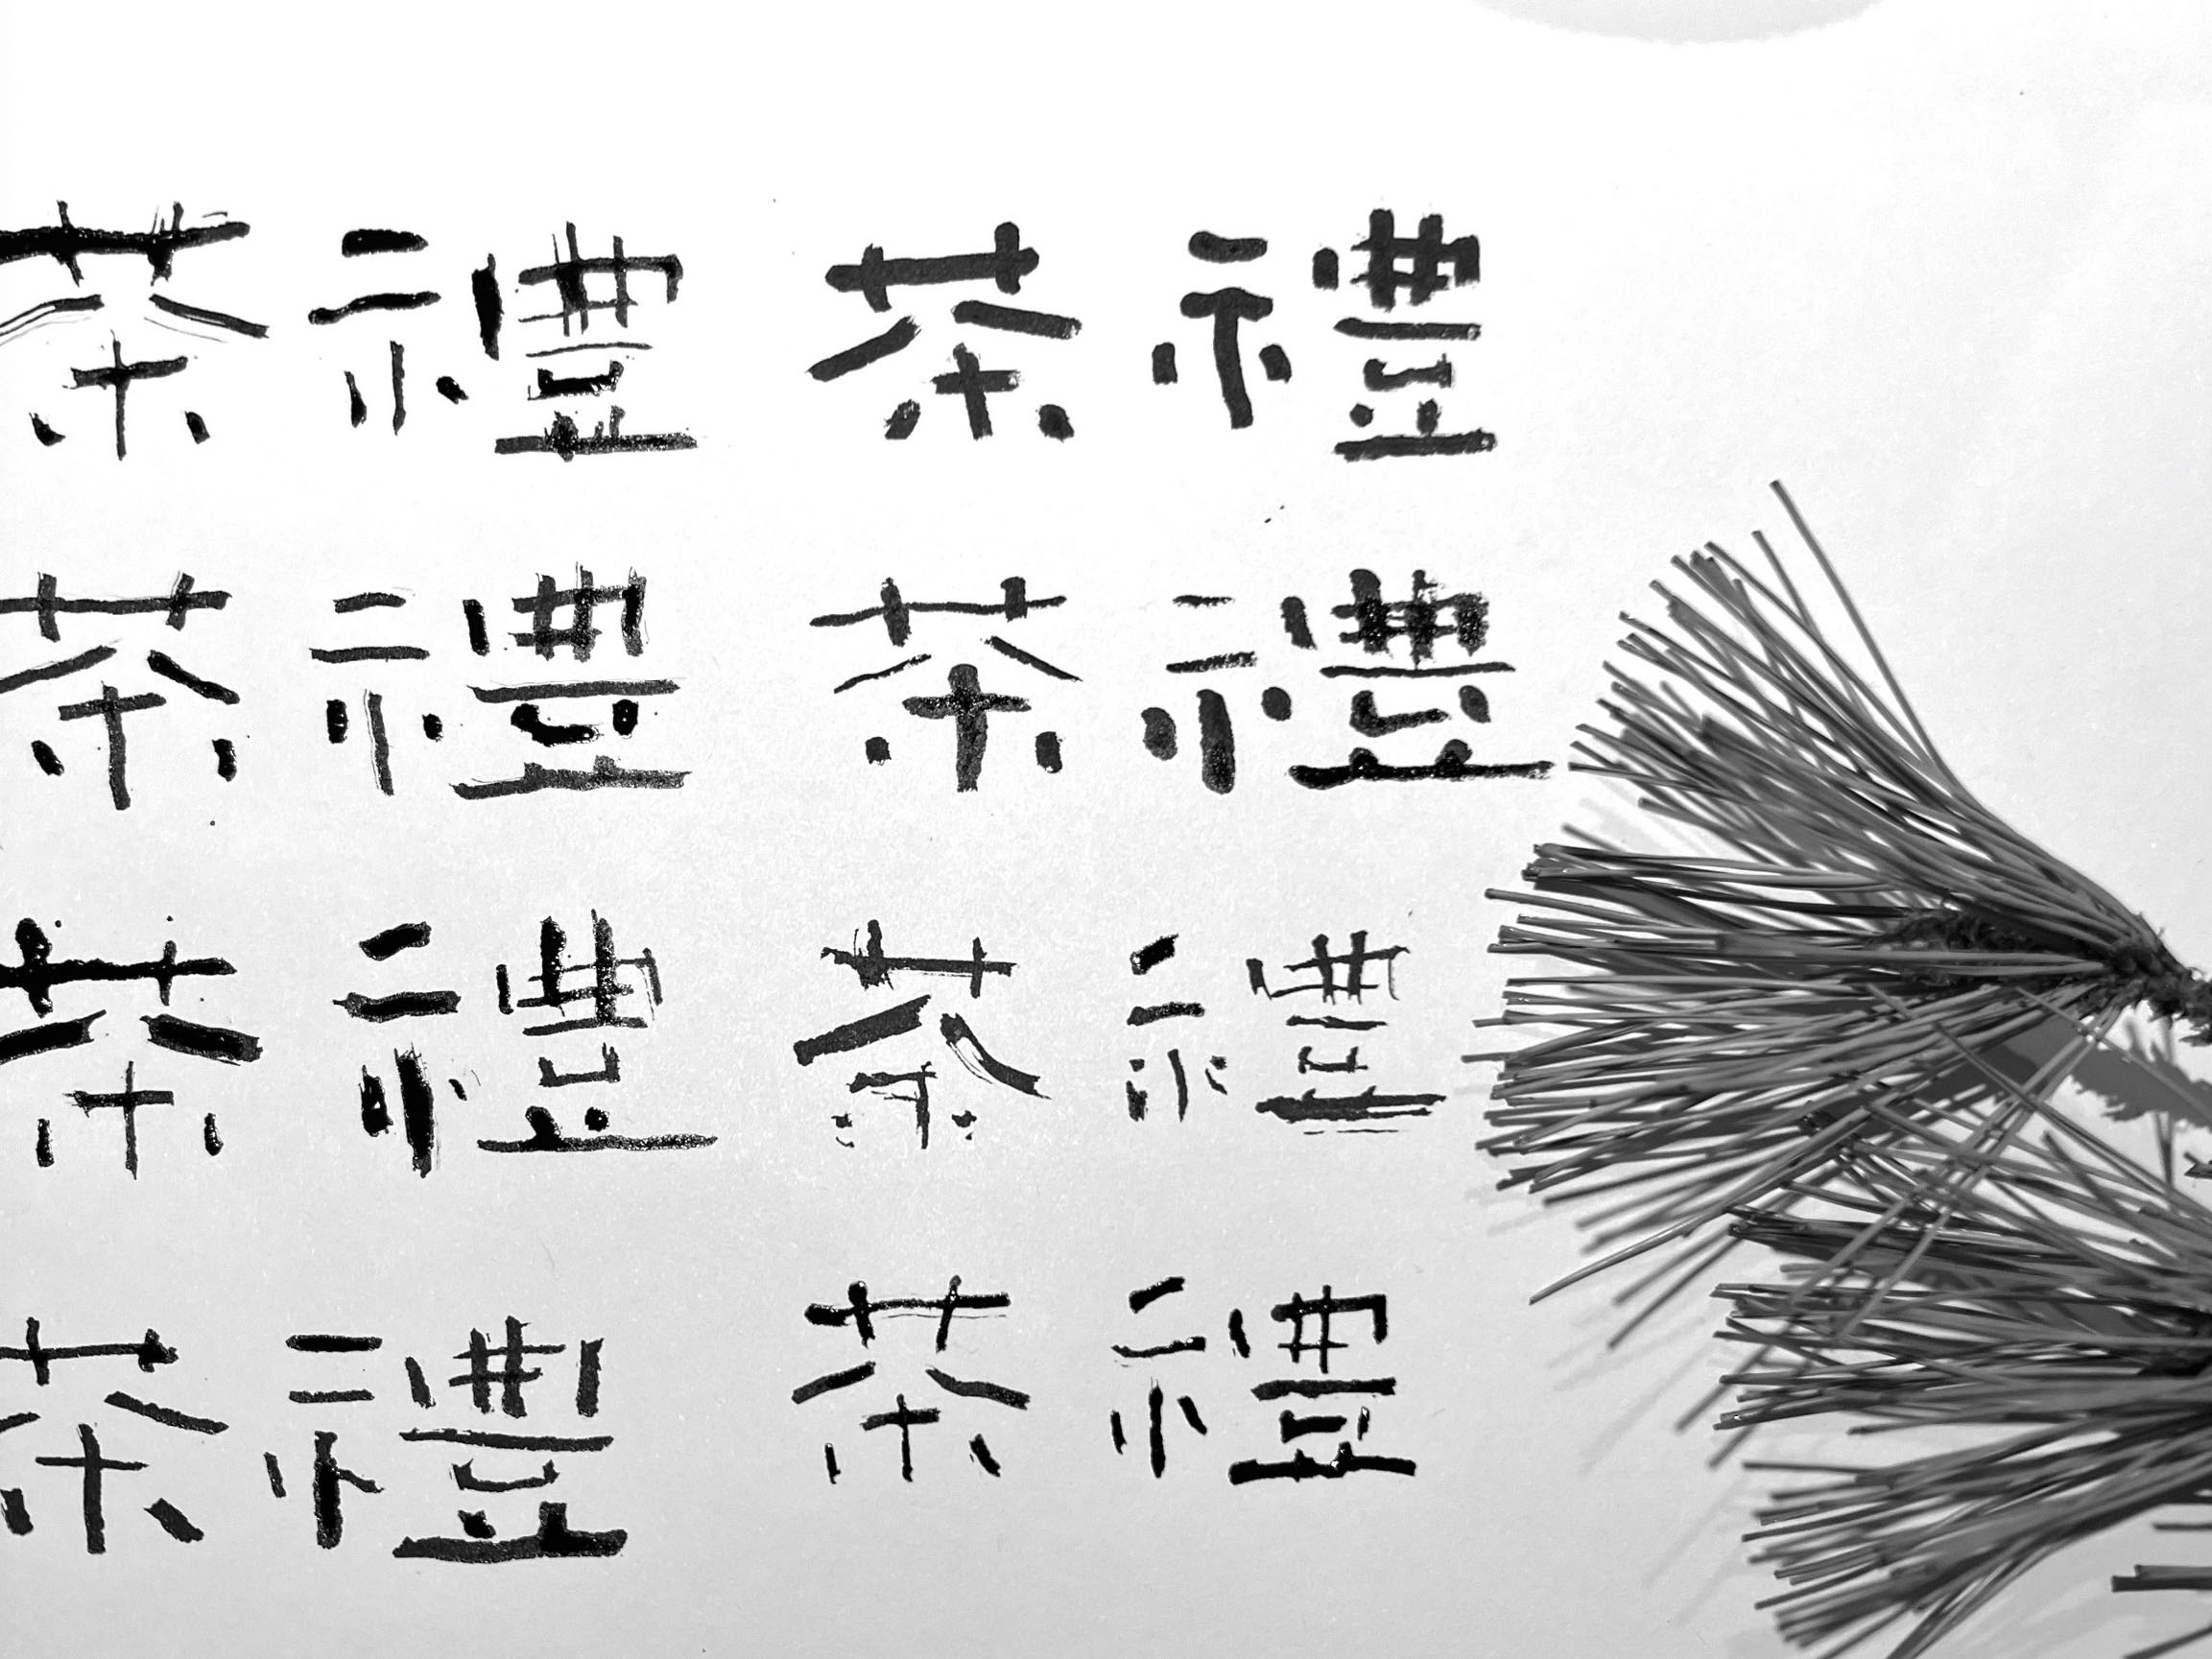 茶禮 茶禮
茶禮 茶禮
茶禮 茶禮
茶禮 茶禮